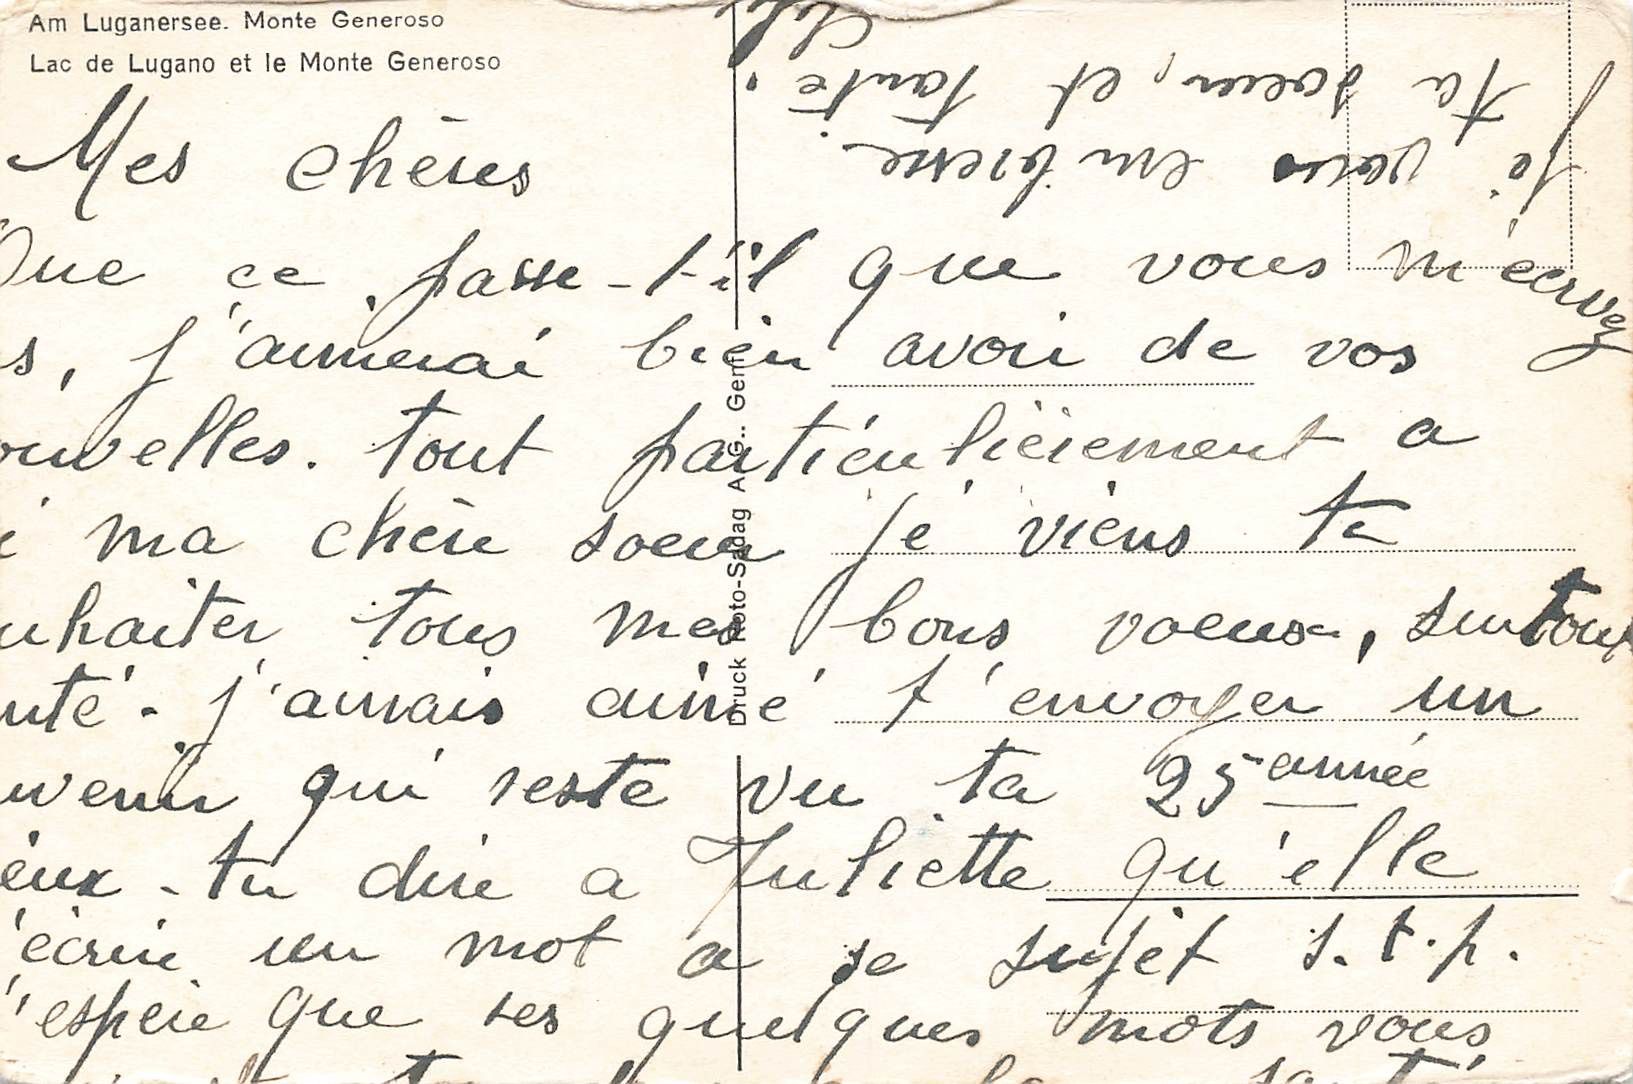 Am Luganersee. Monte Generoso
Lac de Lugano et le Monte Generoso
Mes chères
Que ce passe-t'il que vous m'ecrvez
s, j'aimerai bien avoir de vos
ouvelles. tout particulièrement a
i ma chère soeur je viens te
uhaiter tous mes bons voeux, surtout
nté. j'aimais aimé t'envoyer un
uvenir qui reste vu ta 25 année
eux-tu dire a Juliette qu'elle
'écrire un mot a se sujet s.t.p.
'espère que ses quelques mots vous
Druck Roto-Sadag A.G.. Genf
je vous embrasse
ta soeur, et tante.